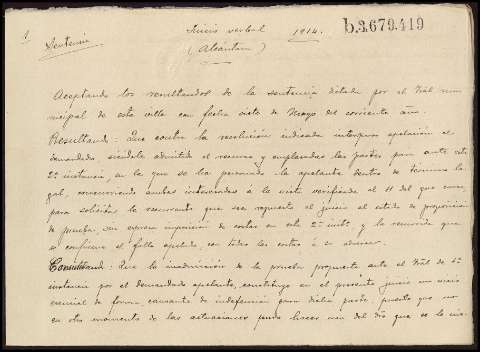 1
Sentencia
Juicio verbal 1914.
(Alcántara)
b.3.679.419
Aceptando los resultandos de la sentencia dictada por el Tral mu-
nicipal de esta villa con fecha siete de Mayo del corriente año.
Resultando: Que contra la resolución indicada interpuso apelación el
demandado, siéndole admitido el recurso y emplazadas las partes para ante esta
2ª instancia, en la que se ha personado la apelante dentro de término le-
gal, concurriendo ambas interesadas a la vista verificada el 11 del que cursa,
para solicitar la recurrente que sea repuesto el juicio al estado de proposición
de prueba, con expresa imposición de costas en esta 2ª inst. y la recurrida que
se confirme el fallo apelado, con todas las costas a su adverso.
Considerando: Que la inadmisión de la prueba propuesta ante el Tral de 1ª
instancia por el demandado apelante, constituye en el presente juicio un vicio
esencial de forma, causante de indefensión para dicha parte, puesto que no
en otro momento de las actuaciones puede hacer uso del día que se le